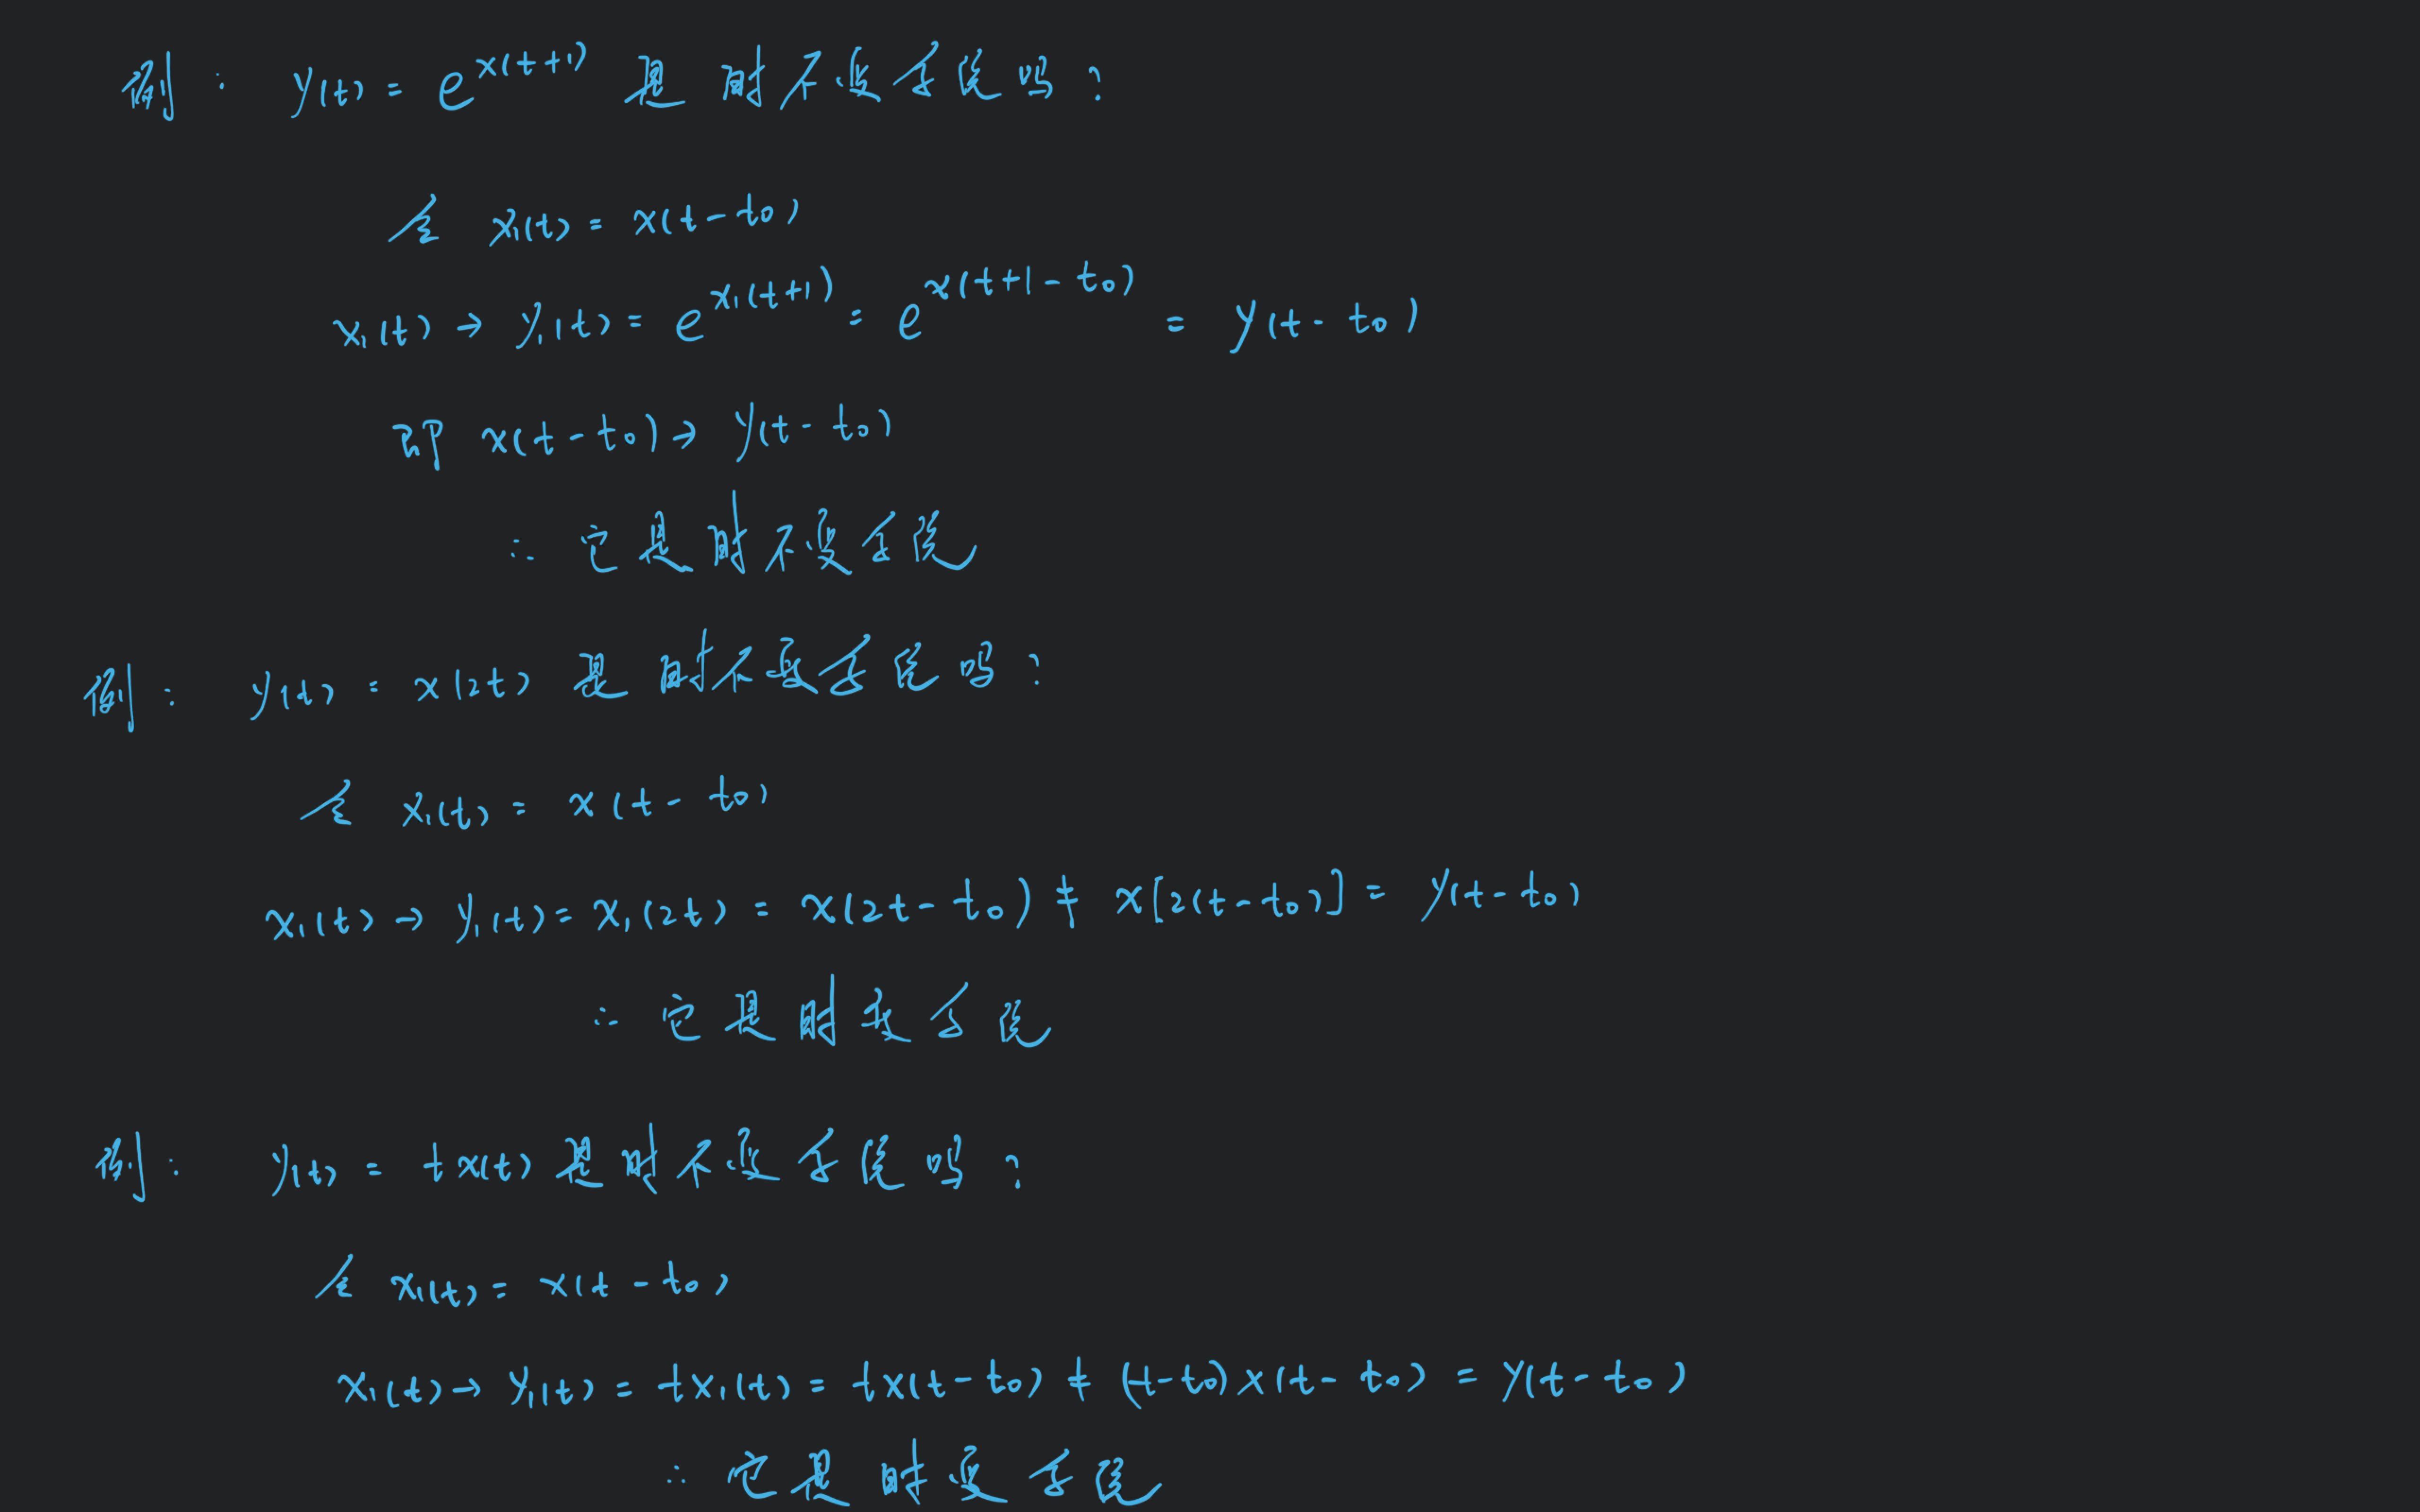 例: y(t) = e^{x(t+1)} 是时不变系统吗?
令 x₁(t) = x(t-t₀)
x₁(t) → y₁(t) = e^{x₁(t+1)} = e^{x(t+1-t₀)} = y(t-t₀)
即 x(t-t₀) → y(t-t₀)
∴ 它是时不变系统
例: y(t) = x(2t) 是时不变系统吗?
令 x₁(t) = x(t-t₀)
x₁(t) → y₁(t) = x₁(2t) = x(2t-t₀) ≠ x[2(t-t₀)] = y(t-t₀)
∴ 它是时变系统
例: y(t) = tx(t) 是时不变系统吗?
令 x₁(t) = x(t-t₀)
x₁(t) → y₁(t) = tx₁(t) = tx(t-t₀) ≠ (t-t₀)x(t-t₀) = y(t-t₀)
∴ 它是时变系统